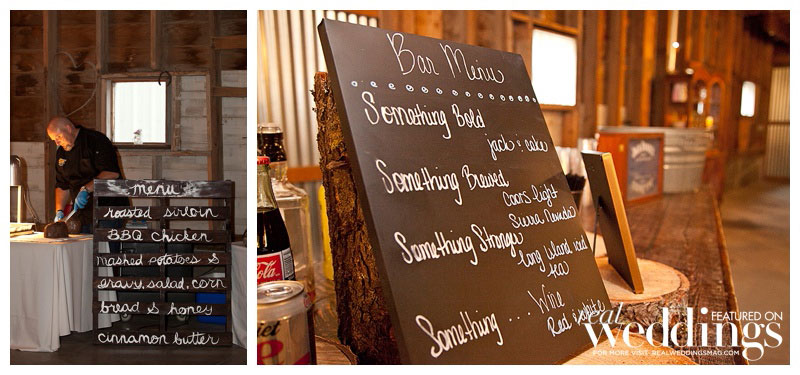 menu
roasted sirloin
BBQ chicken
mashed potatoes &
gravy, salad, corn
bread & honey
cinnamon butter
Bar Menu
Something Bold
jack & coke
Something Brewed
Coors light
Sierra Nevada
Something Stronger
long island iced
tea
Something ... Wine
Red & white
Coca-Cola
Diet
real weddings
FEATURED ON
FOR MORE VISIT: REALWEDDINGSMAG.COM